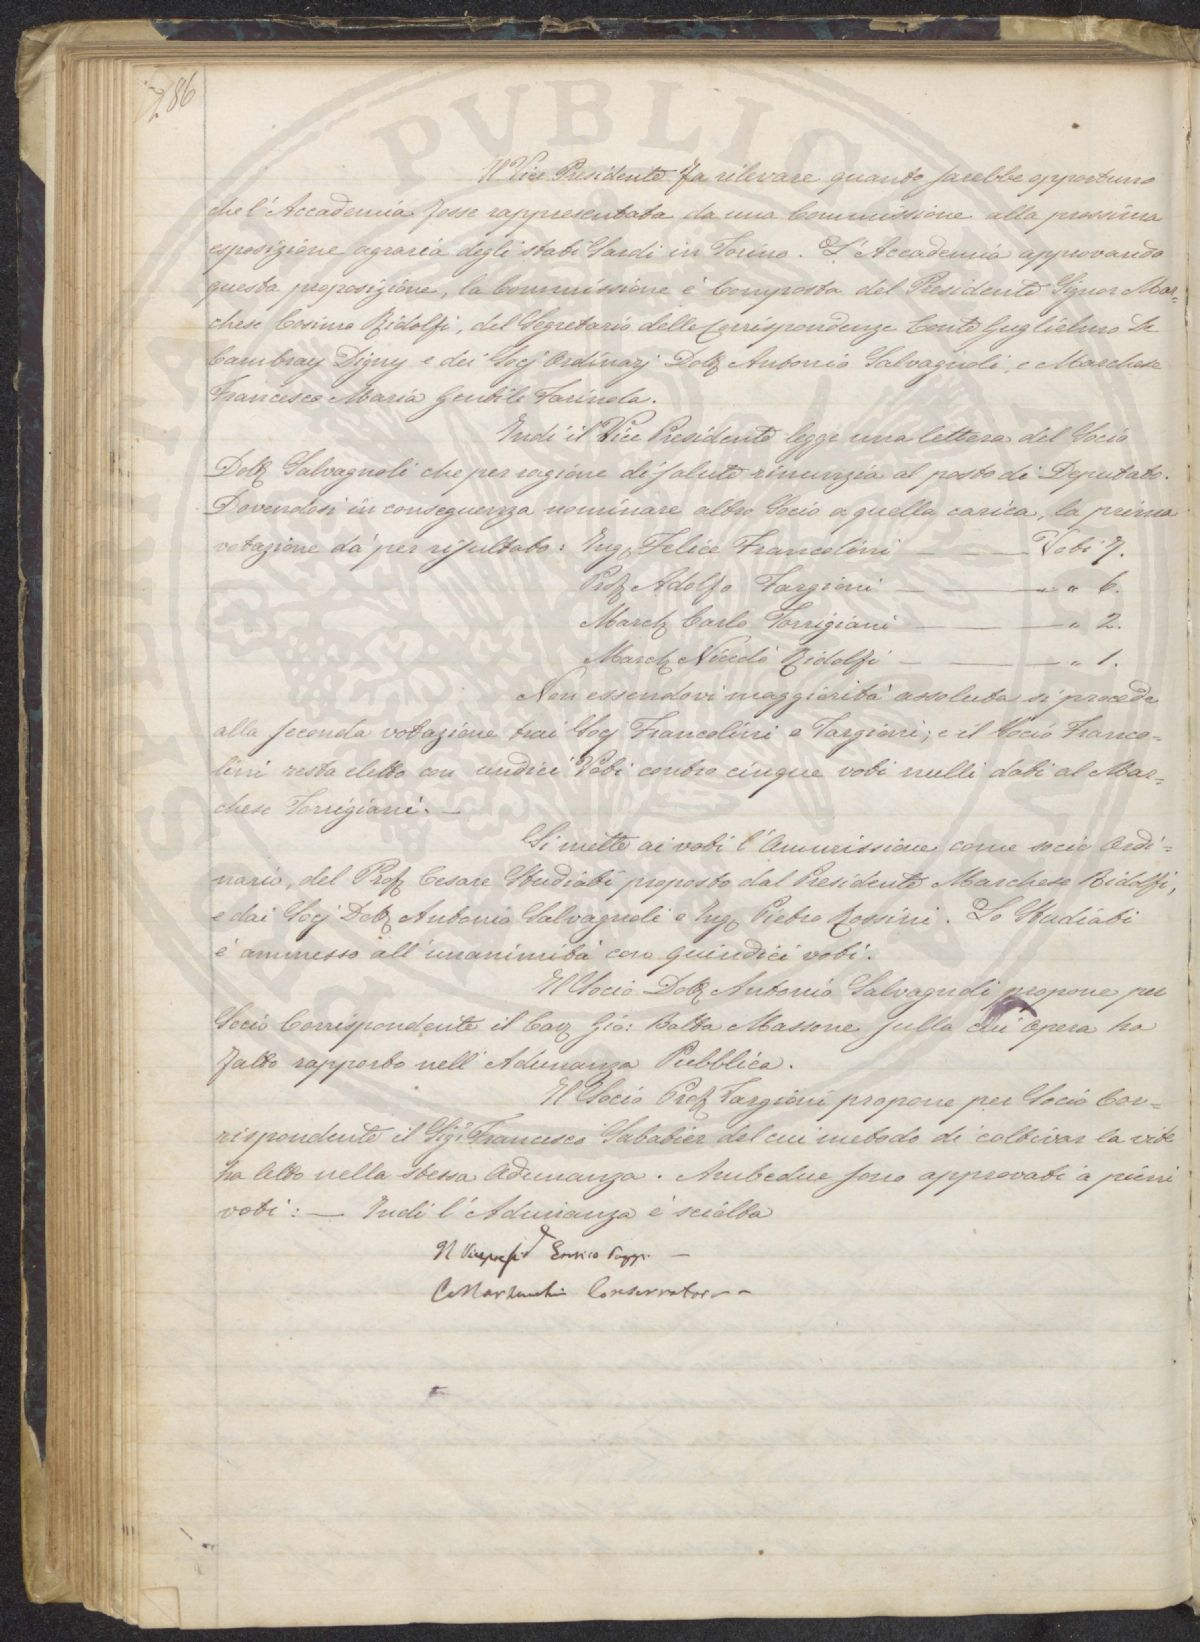 286
Il Vice Presidente fa rilevare quanto sarebbe opportuno
che l'Accademia fosse rappresentata da una Commissione alla prossima
esposizione agraria degli stati Sardi in Torino. L'Accademia approvando
questa proposizione, la Commissione è composta del Presidente Signor Mar=
chese Cosimo Ridolfi, del Segretario delle Corrispondenze Conte Guglielmo De
Cambray Digny e dei Socj Ordinarj Dott. Antonio Salvagnoli, e Marchese
Francesco Maria Gentile Farinola.
Indi il Vice Presidente legge una lettera del Socio
Dott. Salvagnoli che per ragione di salute rinunzia al posto di Deputato.
Dovendosi in conseguenza nominare altro Socio a quella carica, la prima
votazione dà per risultato: Ing. Felice Francolini — — Voti 7.
Prof. Adolfo Targioni — — " 6.
March. Carlo Torrigiani — — " 2.
March. Niccolò Ridolfi — — " 1.
Non essendovi maggiorità assoluta si procede
alla seconda votazione trai Socj Francolini e Targioni; e il Socio Franco=
lini resta eletto con undici Voti contro cinque voti nulli dati al Mar=
chese Torrigiani. —
Si mette ai voti l'Ammissione come socio Ordi=
nario, del Prof. Cesare Studiati proposto dal Presidente Marchese Ridolfi,
e dai Socj Dott. Antonio Salvagnoli e Ing. Pietro Rossini. Lo Studiati
è ammesso all'unanimità con quindici voti.
Il Socio Dott. Antonio Salvagnoli propone per
Socio Corrispondente il Cav. Gio: Batta Massone sulla cui opera ha
fatto rapporto nell'Adunanza Pubblica.
Il Socio Prof. Targioni propone per Socio Cor=
rispondente il Sig.r Francesco Sabatier del cui metodo di coltivar la vite
ha letto nella stessa Adunanza. Ambedue sono approvati a pieni
voti: — Indi l'Adunanza è sciolta
Il Vicepresid.e Enrico Poggi —
C. Marzucchi Conservatore
PVBLICA